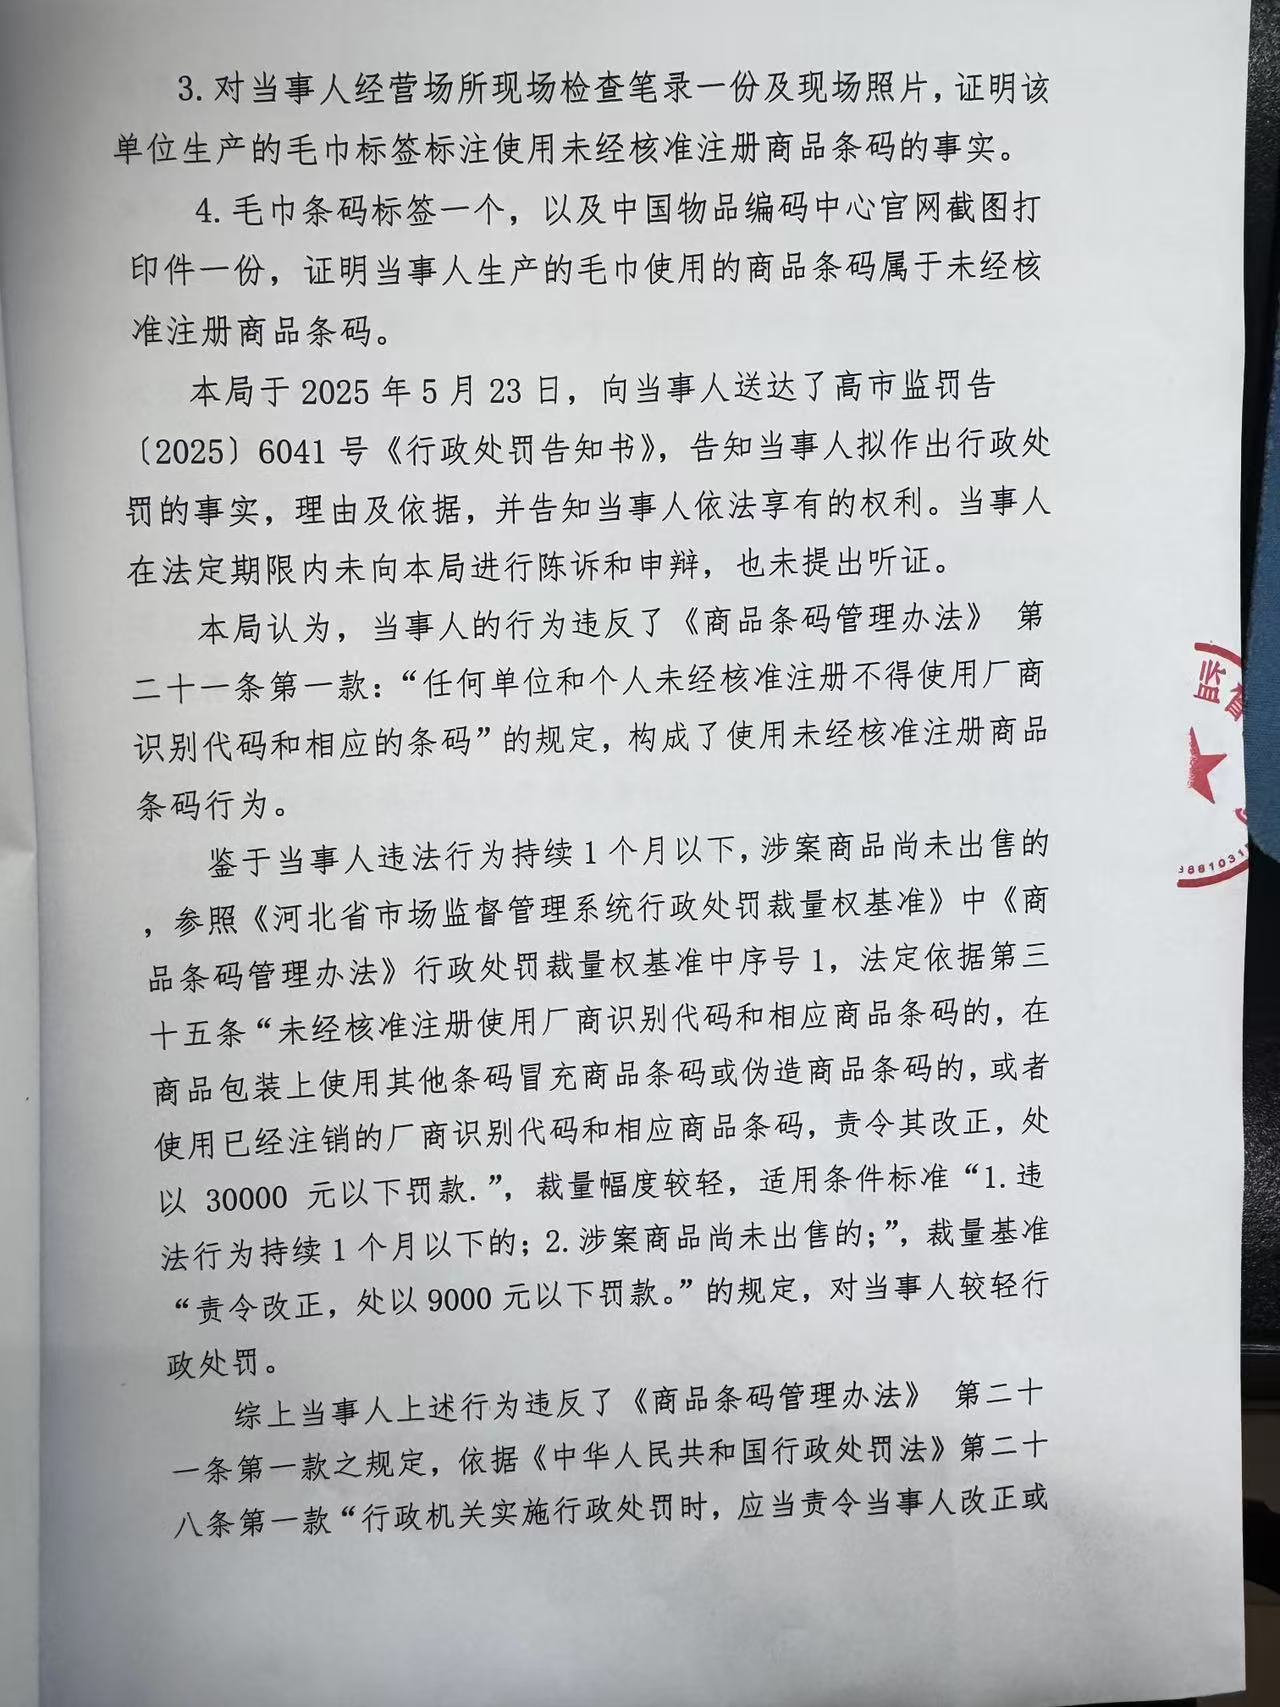 3.对当事人经营场所现场检查笔录一份及现场照片，证明该
单位生产的毛巾标签标注使用未经核准注册商品条码的事实。
4.毛巾条码标签一个，以及中国物品编码中心官网截图打
印件一份，证明当事人生产的毛巾使用的商品条码属于未经核
准注册商品条码。
本局于 2025 年 5 月 23 日，向当事人送达了高市监罚告
〔2025〕6041 号《行政处罚告知书》，告知当事人拟作出行政处
罚的事实，理由及依据，并告知当事人依法享有的权利。当事人
在法定期限内未向本局进行陈诉和申辩，也未提出听证。
本局认为，当事人的行为违反了《商品条码管理办法》 第
二十一条第一款：“任何单位和个人未经核准注册不得使用厂商
识别代码和相应的条码”的规定，构成了使用未经核准注册商品
条码行为。
鉴于当事人违法行为持续1个月以下，涉案商品尚未出售的
，参照《河北省市场监督管理系统行政处罚裁量权基准》中《商
品条码管理办法》行政处罚裁量权基准中序号1，法定依据第三
十五条“未经核准注册使用厂商识别代码和相应商品条码的，在
商品包装上使用其他条码冒充商品条码或伪造商品条码的，或者
使用已经注销的厂商识别代码和相应商品条码，责令其改正，处
以 30000 元以下罚款.”，裁量幅度较轻，适用条件标准“1.违
法行为持续1个月以下的；2.涉案商品尚未出售的；”，裁量基准
“责令改正，处以9000元以下罚款。”的规定，对当事人较轻行
政处罚。
综上当事人上述行为违反了《商品条码管理办法》 第二十
一条第一款之规定，依据《中华人民共和国行政处罚法》第二十
八条第一款“行政机关实施行政处罚时，应当责令当事人改正或
监督